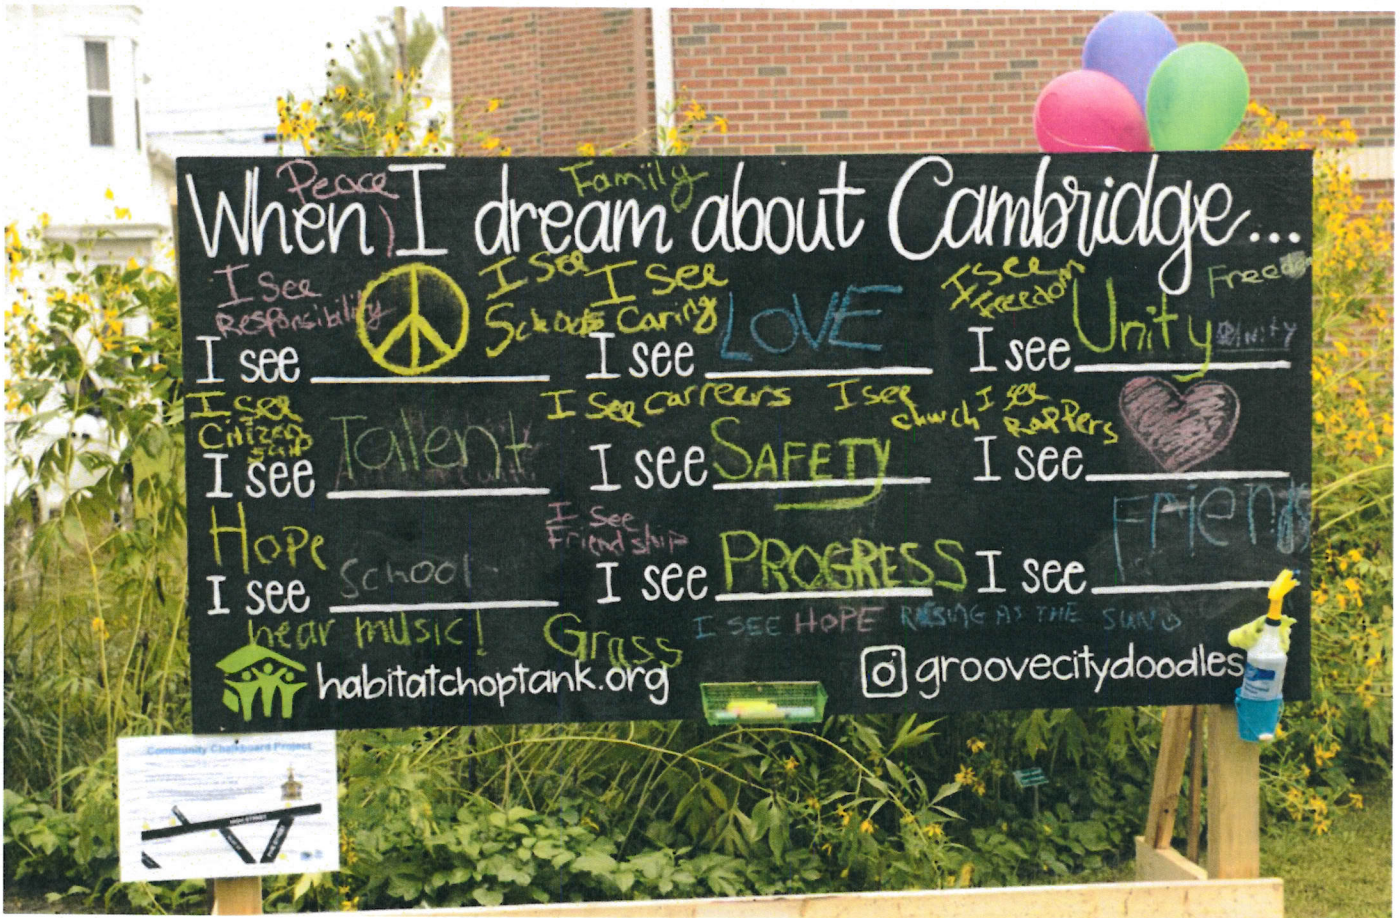 Peace Family
When I dream about Cambridge...
I See Responsibility
I See Schools
I See Caring
I see Freedom
Freedom
I see
I see LOVE
I see Unity
Unity
I see Citizenship
I See Carreers
I see church
I see Rappers
I see Talent
I see SAFETY
I see
Hope
I See Friendship
I see School
I see PROGRESS
I see Friends
hear music!
Grass
I SEE HOPE RISING AS THE SUN
habitatchoptank.org
groovecitydoodles
Community Chalkboard Project
HIGH STREET